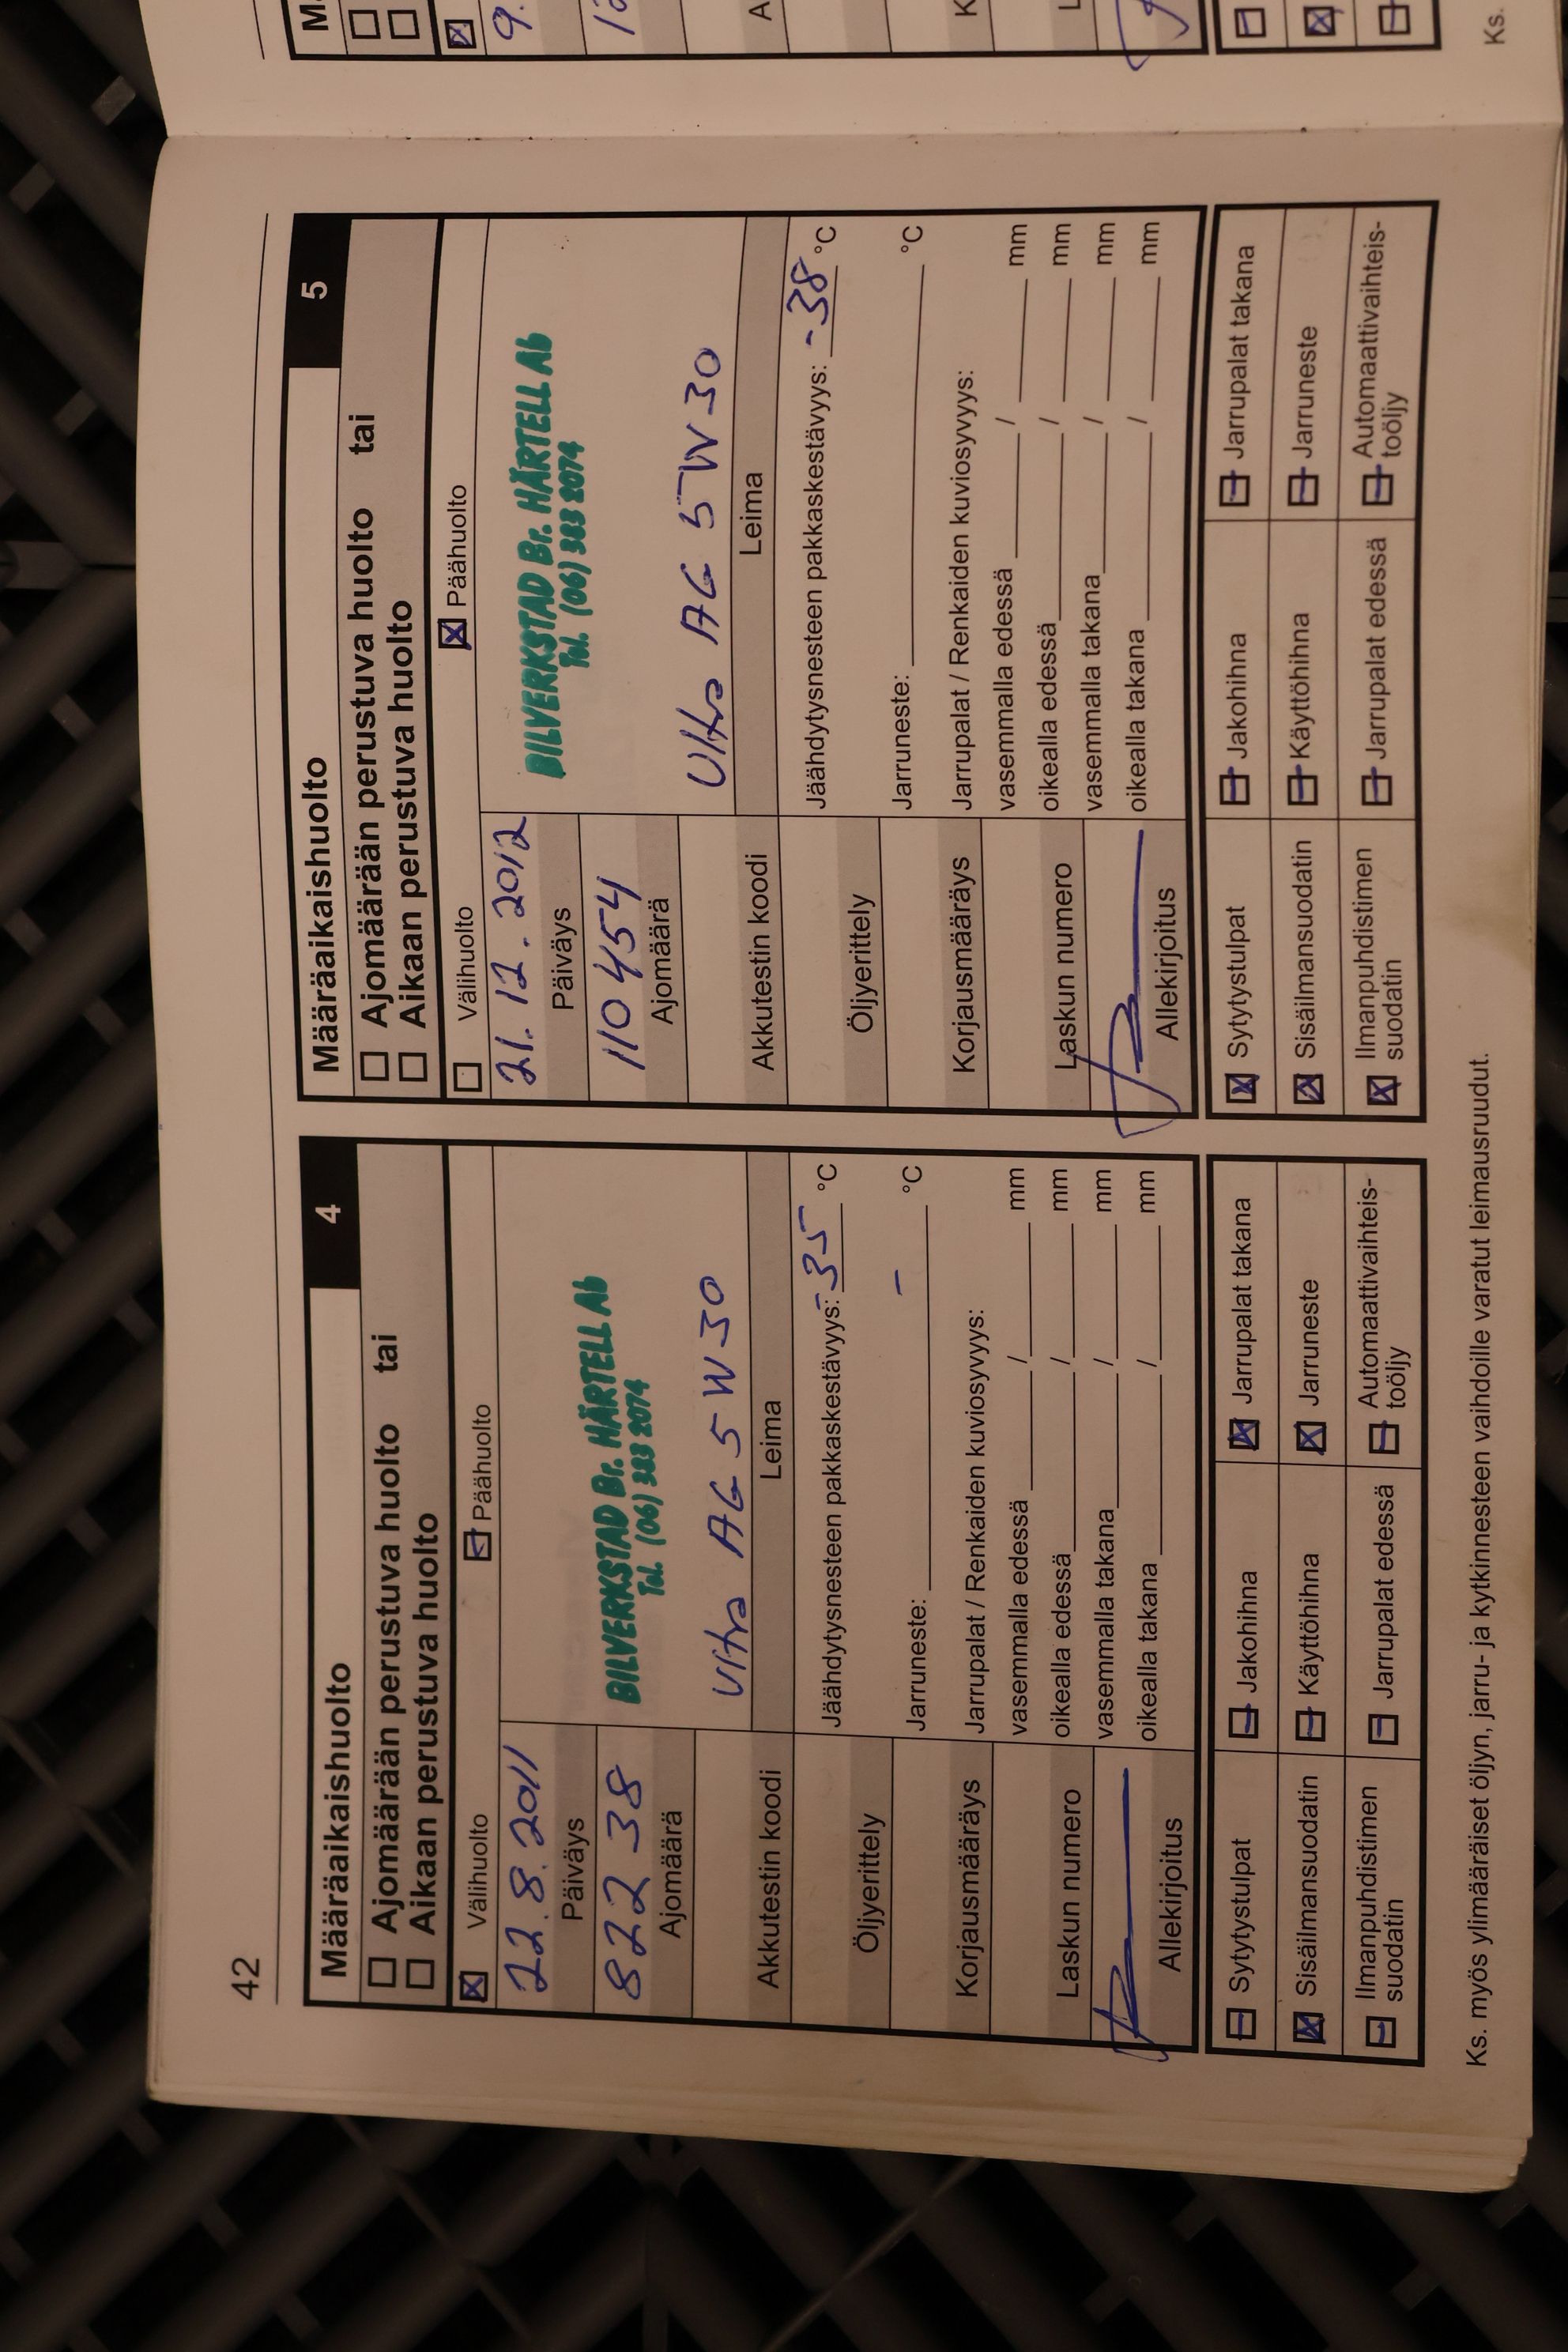 42
Määräaikaishuolto 4
Ajomäärään perustuva huolto tai
Aikaan perustuva huolto
Välihuolto Päähuolto
22.8.2011
Päiväys
BILVERKSTAD Br. HÄRTELL Ab
Tel. (06) 383 2074
82238
Ajomäärä
Ultra AG 5W30
Akkutestin koodi
Leima
Öljyerittely
Jäähdytysnesteen pakkaskestävyys: -35 °C
Jarruneste: - °C
Korjausmääräys
Jarrupalat / Renkaiden kuviosyvyys:
vasemmalla edessä / mm
Laskun numero
oikealla edessä / mm
vasemmalla takana / mm
Allekirjoitus
oikealla takana / mm
Sytytystulpat Jakohihna Jarrupalat takana
Sisäilmansuodatin Käyttöhihna Jarruneste
Ilmanpuhdistimen
suodatin
Jarrupalat edessä
Automaattivaihteis-
toöljy
Määräaikaishuolto 5
Ajomäärään perustuva huolto tai
Aikaan perustuva huolto
Välihuolto Päähuolto
21.12.2012
Päiväys
BILVERKSTAD Br. HÄRTELL Ab
Tel. (06) 383 2074
110454
Ajomäärä
Ultra AG 5W30
Akkutestin koodi
Leima
Öljyerittely
Jäähdytysnesteen pakkaskestävyys: -38 °C
Jarruneste: °C
Korjausmääräys
Jarrupalat / Renkaiden kuviosyvyys:
vasemmalla edessä / mm
Laskun numero
oikealla edessä / mm
vasemmalla takana / mm
Allekirjoitus
oikealla takana / mm
Sytytystulpat Jakohihna Jarrupalat takana
Sisäilmansuodatin Käyttöhihna Jarruneste
Ilmanpuhdistimen
suodatin
Jarrupalat edessä
Automaattivaihteis-
toöljy
Ks. myös ylimääräiset öljyn, jarru- ja kytkinnesteen vaihdoille varatut leimausruudut.
Ks.